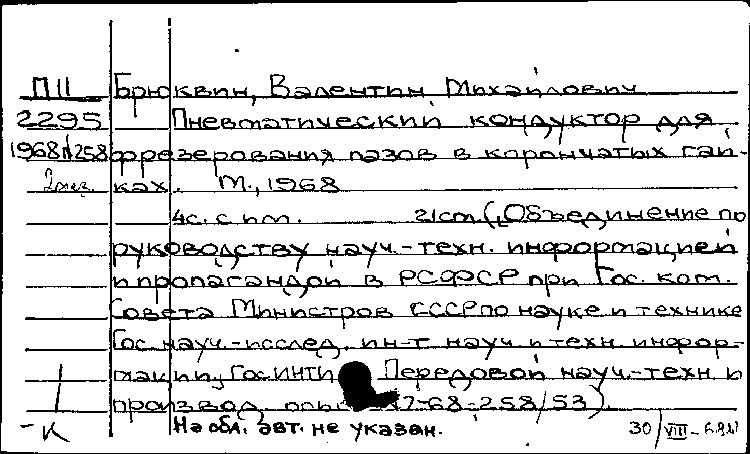 П11 Брюквин, Валентин Михайлович
2295 Пневматический кондуктор для
1968п258 фрезерования пазов в корончатых гай-
2экз. ках. М., 1968
4с. с ил. 21см. („Объединение по
руководству науч.-техн. информацией
и пропагандой в РСФСР при Гос. ком.
Совета Министров СССР по науке и технике
Гос. науч.-исслед. ин-т науч. и техн. инфор-
мации, ГосИНТИ Передовой науч.-техн. и
производ. опыт 7-68-258/53).
-К На обл. авт. не указан. 30/VIII-68